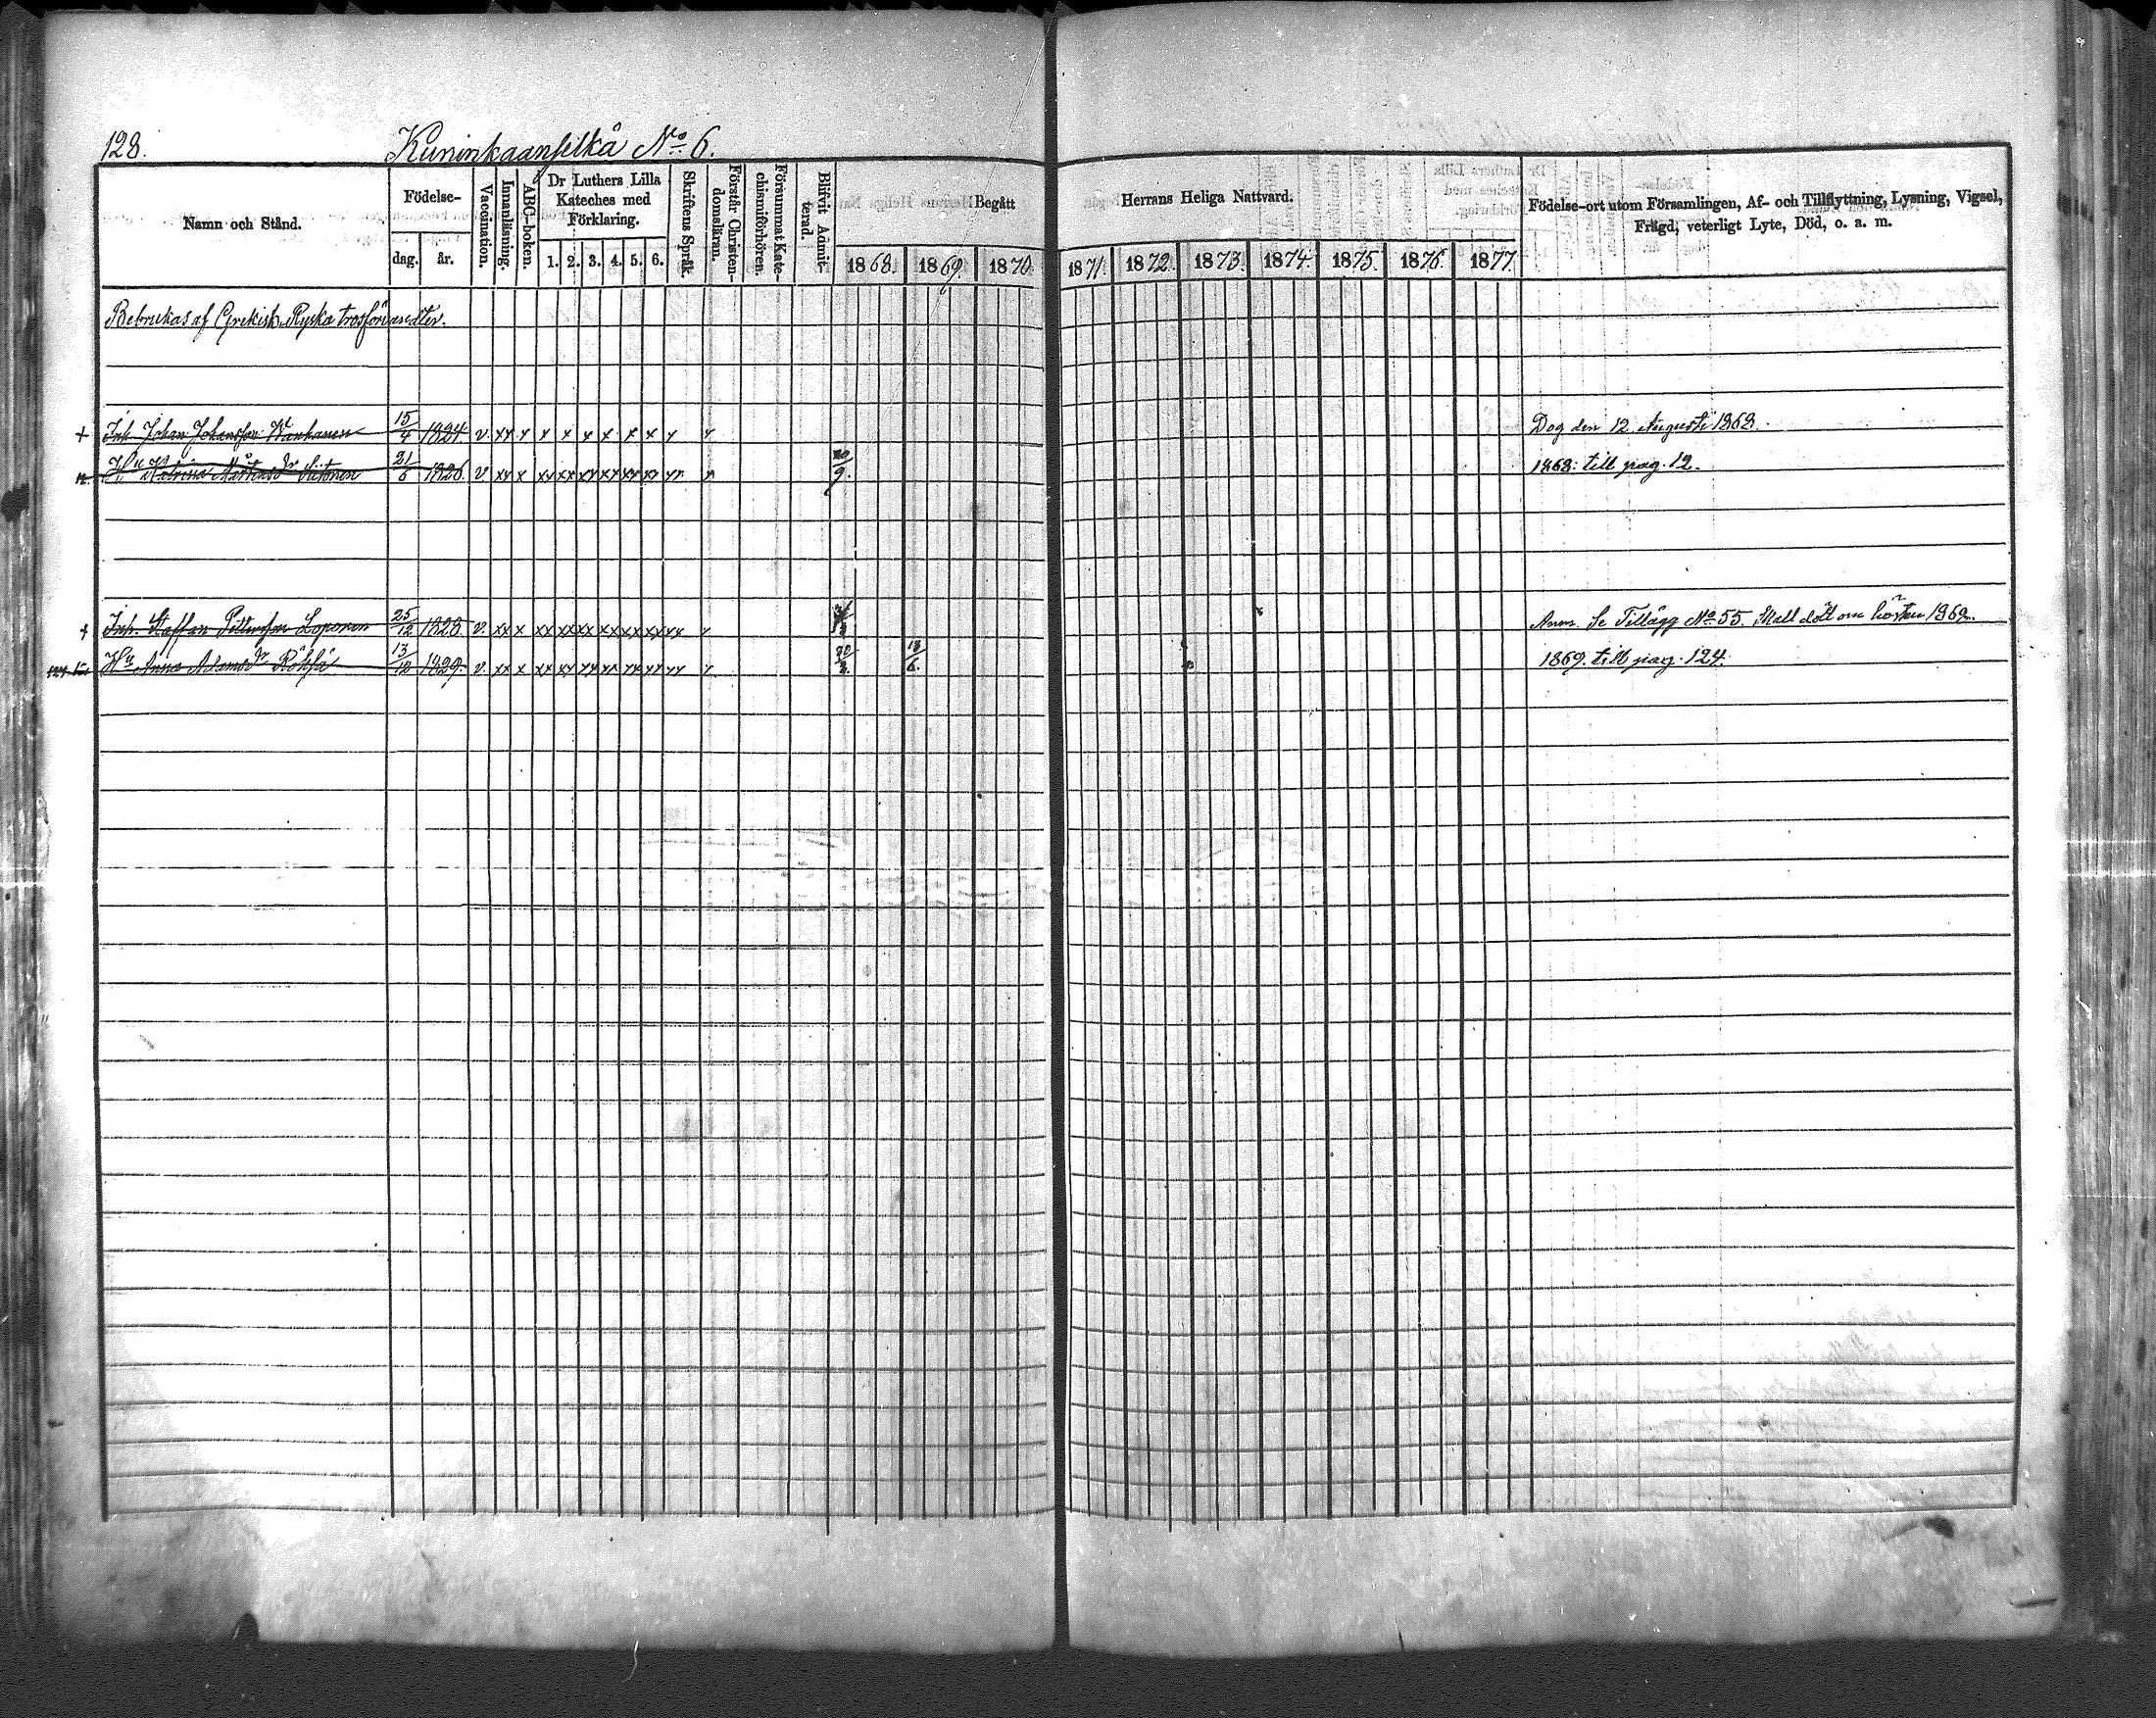 128.
Kuninkaanselkä No 6.
Namn och Stånd.
Födelse-
dag. år.
Vaccination.
Innanläsning.
ABC-boken.
Dr Luthers Lilla
Kateches med
Förklaring.
1. 2. 3. 4. 5. 6.
Skriftens Språk.
Förstår Christen-
domsläran.
Försummat Kate-
chismiförhören.
Blifvit Admit-
terad.
Begått
1868. 1869. 1870.
Herrans Heliga Nattvard.
1871. 1872. 1873. 1874. 1875. 1876. 1877.
Födelse-ort utom Församlingen, Af- och Tillflyttning, Lysning, Vigsel,
Frägd, veterligt Lyte, Död, o. a. m.
Bebrukas af Grekisk-Ryska trosförvandter.
+ Inh. Johan Johansson 15/4 1824. v. xx x x x x x x x x x Dog den 12 Augusti 1868.
Hu 21/6 1826. v xx x xx xx xx xx xx xx xx 9. 1868. till pag. 12.
+ Inh. Staffan Pettersson Loponen 25/12 1828. v. xx x xx xx xx xx xx xx xx x Anm. Se Tillägg No 55. Skall dött om hösten 1868.
Hu Anna Adamsdr 13/12 1829. v. xx x xx xx xx xx xx xx xx x 18/6. 1869. till pag. 124.